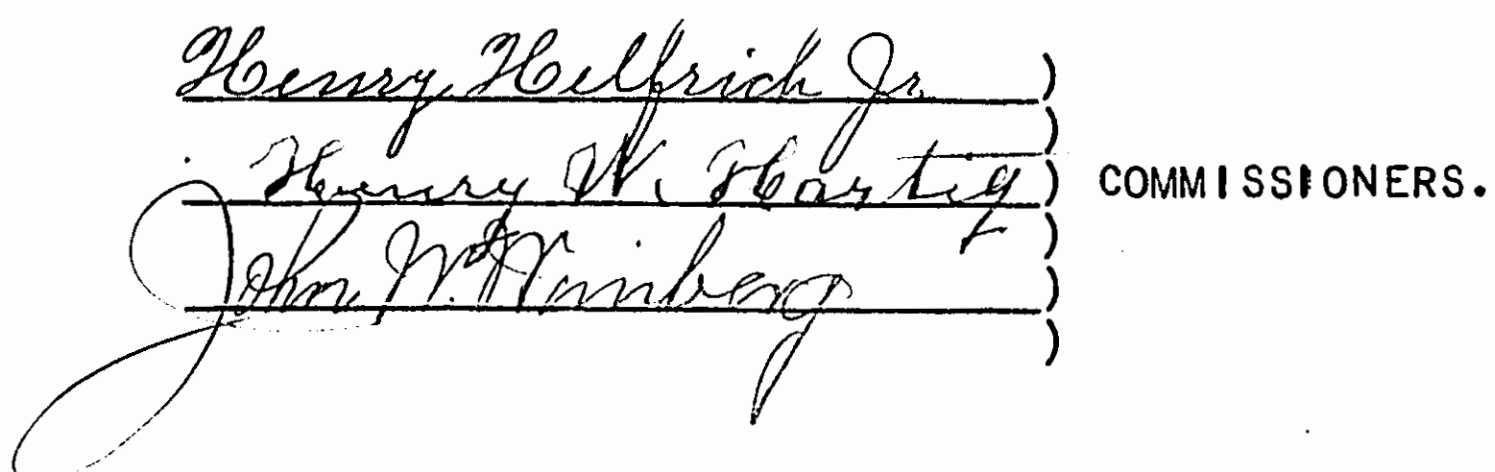 Henry Helfrich Jr. )
)
Henry W. Hartig ) COMMISSIONERS.
)
John W. Wimberg )
)